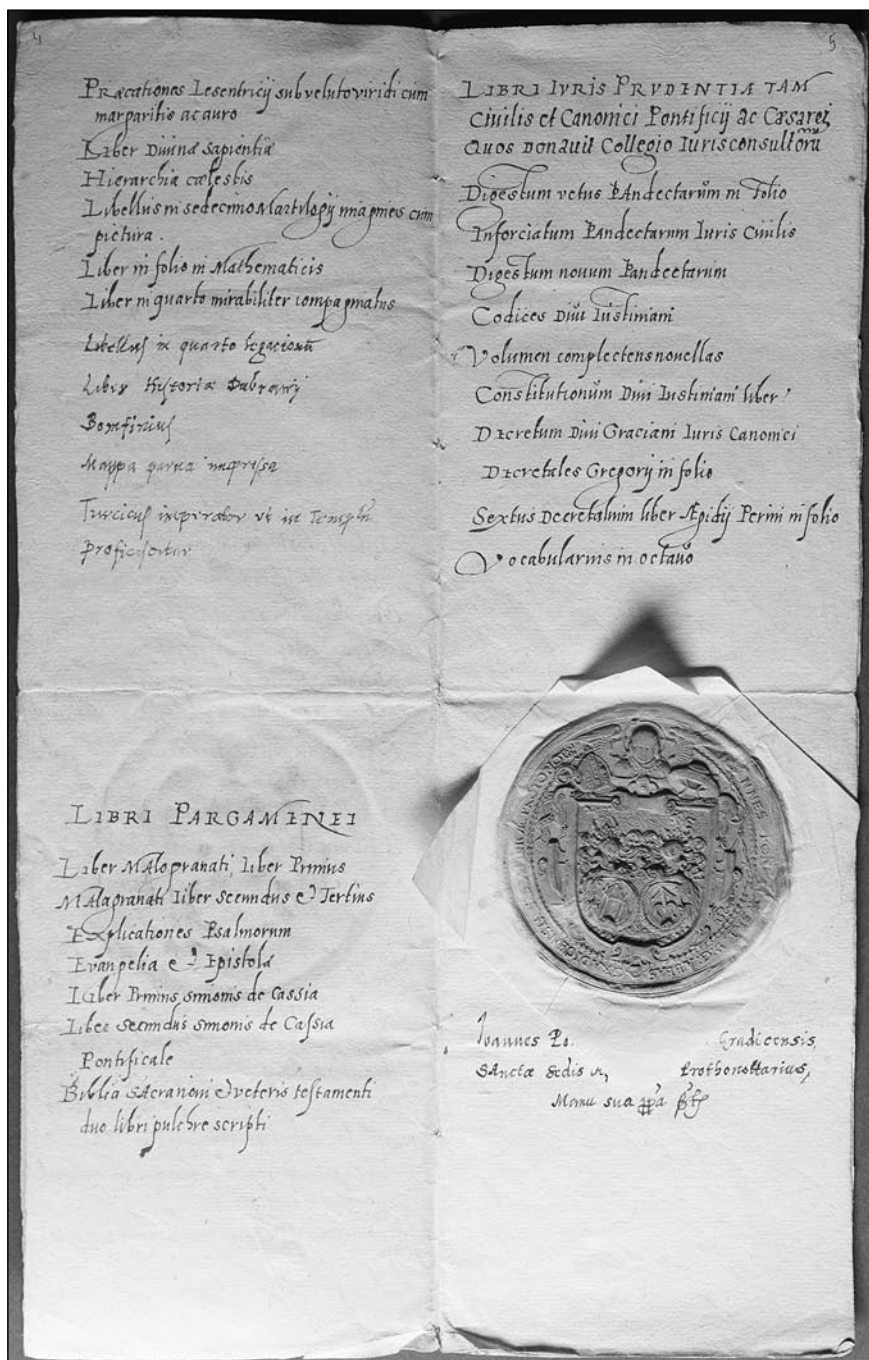 4
Præcationes Lesentricij sub veluto viridi cum
margaritis ac auro
Liber Diuinæ sapientiæ
Hierarchia cælestis
Libellus in sedecimo Martilogij in cum
pictura .
Liber in folio in Mathematicis
Liber in quarto mirabiliter compaginatus
Libellus in quarto legacionū
Liber Historiæ Dubrauij
Bomfinius
Mappa parua impressa
Turcicus imperator vt in Templū
proficiscitur
LIBRI PARGAMINEI
Liber Malogranati, Liber Primus
Malagranati liber secundus & Tertius
Explicationes Psalmorum
Evangelia & Epistolæ
Liber Primus simonis de Cassia
Liber secundus simonis de Cassia
Pontificale
Biblia sacra noui & veteris testamenti
duo libri pulchre scripti
5
LIBRI IVRIS PRVDENTIÆ TAM
Ciuilis et Canonici Pontificij ac Cæsarei
Quos Donauit Collegio Iurisconsultorū
Digestum vetus Pandectarum in Folio
Inforciatum Pandectarum Iuris Ciuilis
Digestum nouum Pandectarum
Codices Diui Iustiniani
Volumen complectens nouellas
Constitutionum Diui Iustiniani liber
Decretum Diui Graciani Iuris Canonici
Decretales Gregorij in folio
Sextus Decretalium liber Ægidij Perini in folio
Vocabularius in octauo
Ioannes Po. Gradicensis,
Sanctæ sedis A, Prothonottarius,
Manu sua